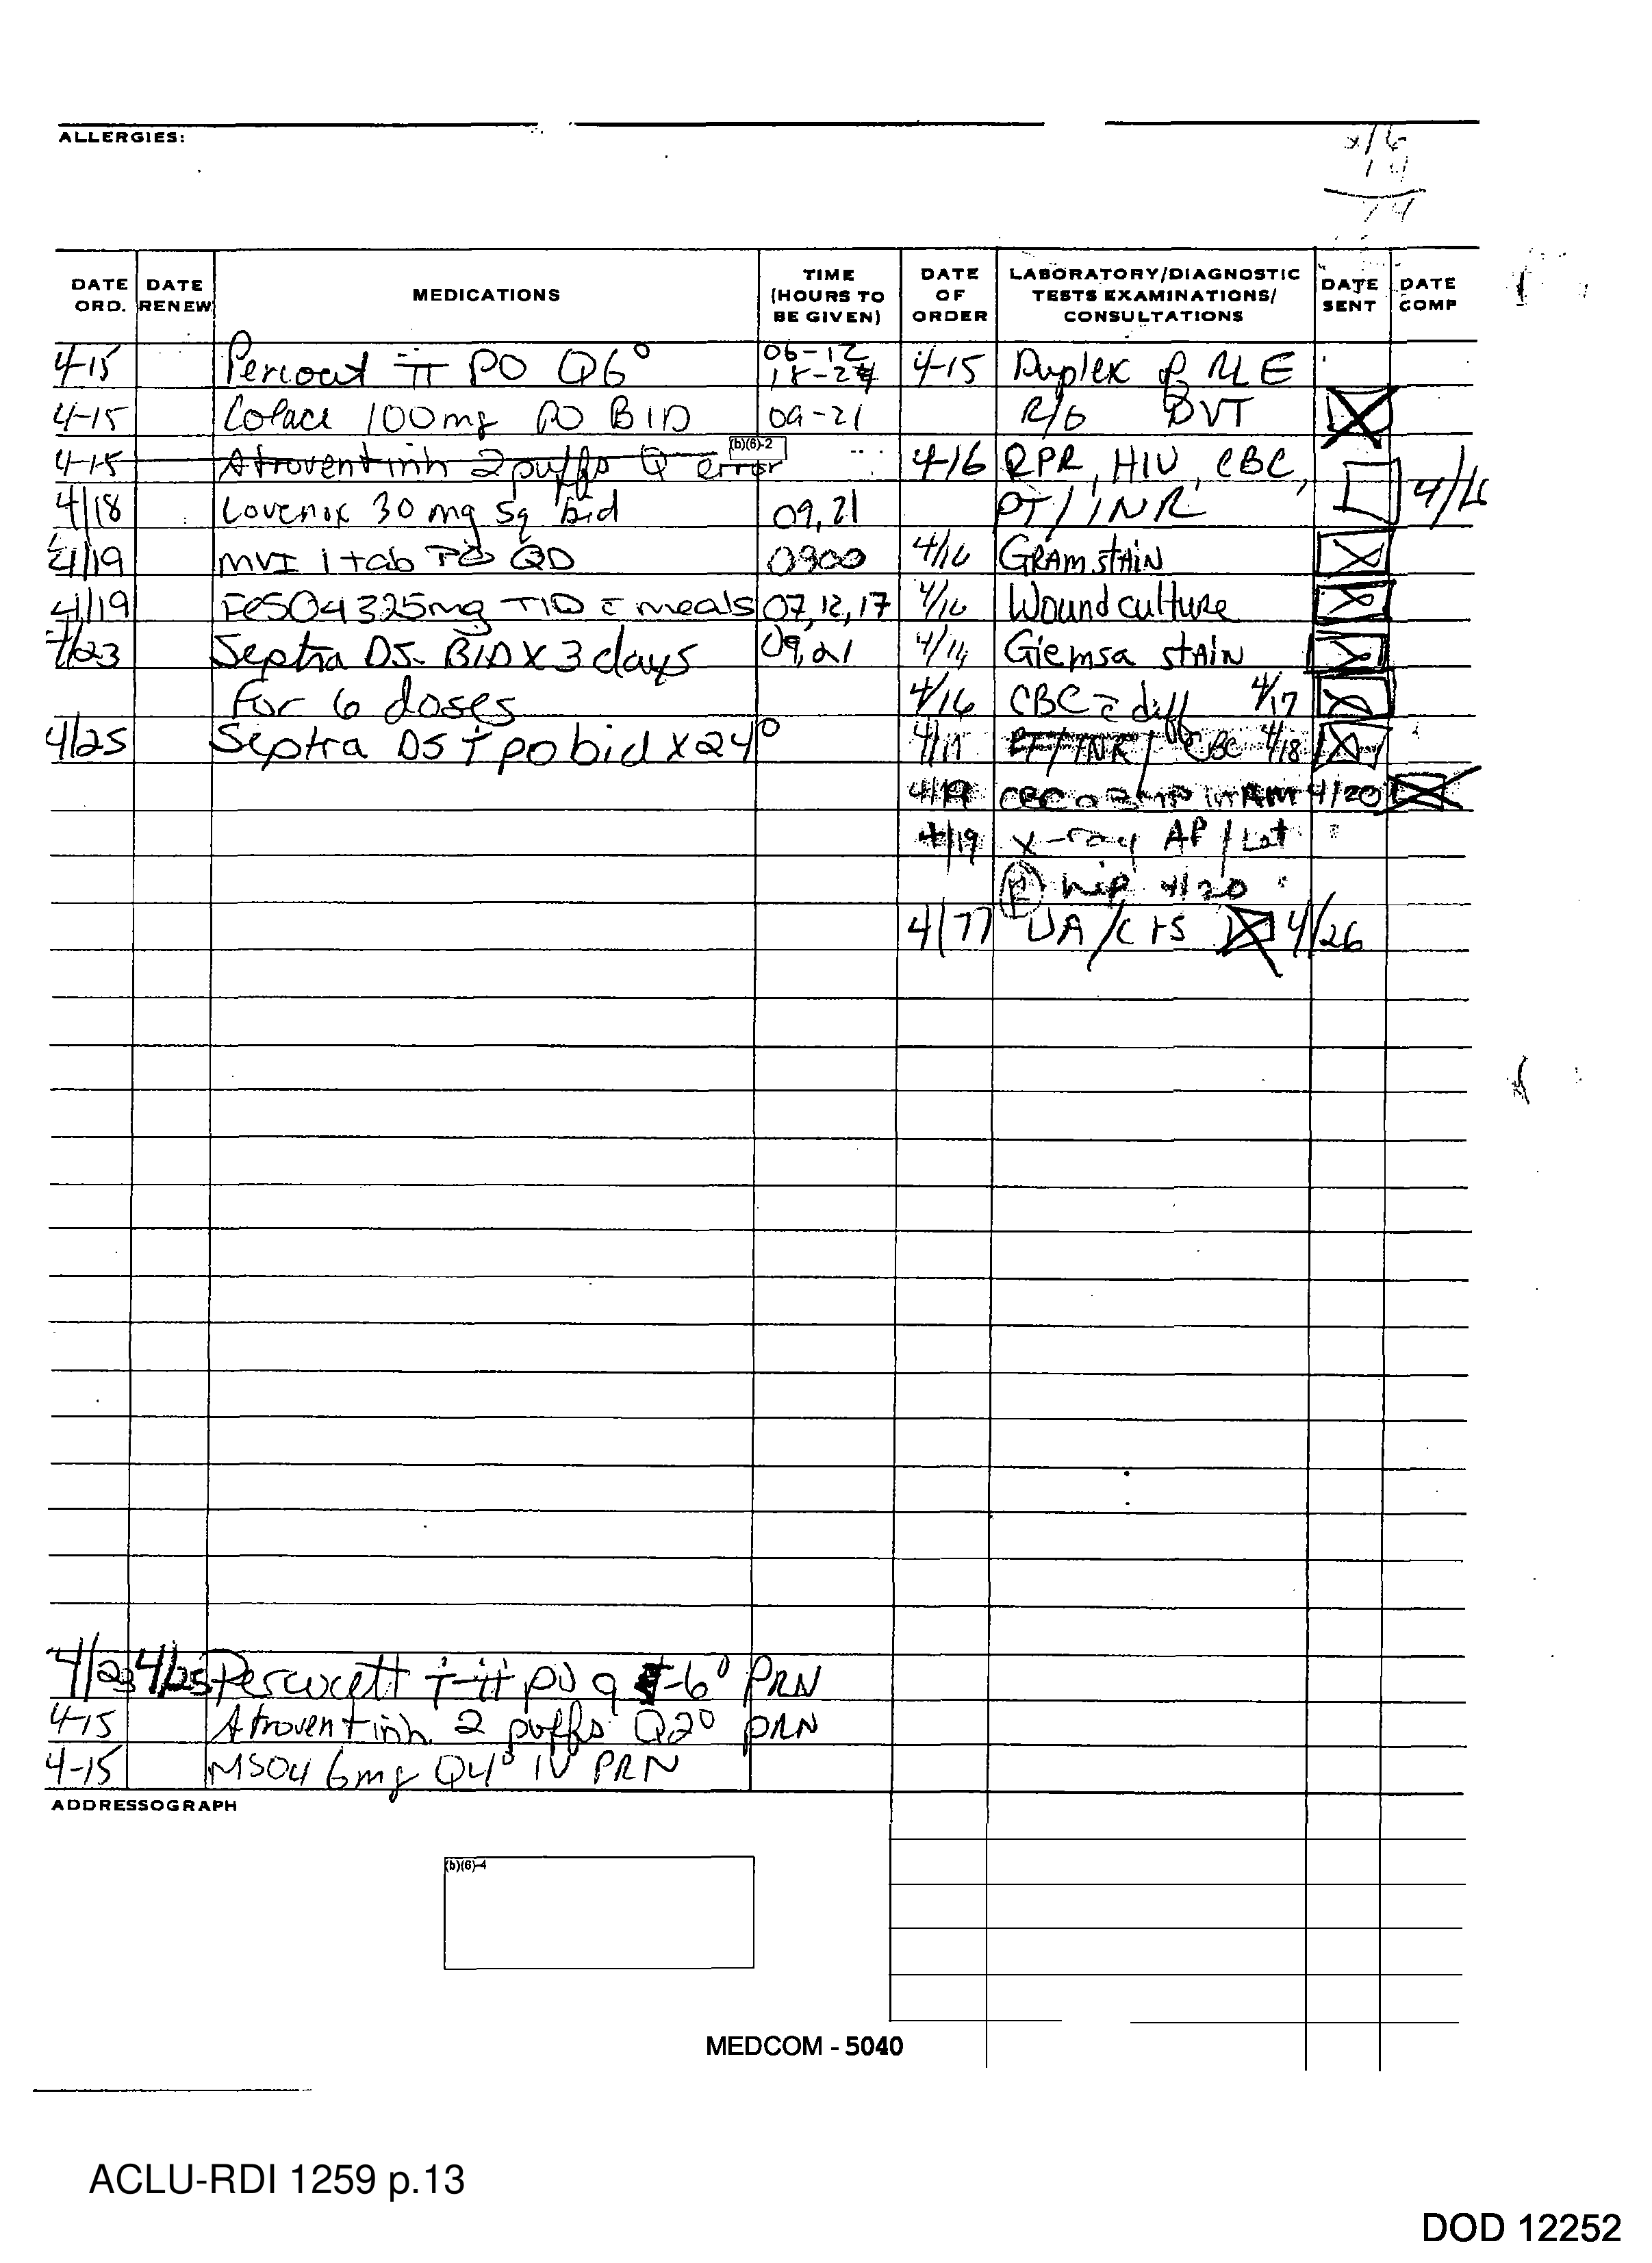 ALLERGIES:
DATE ORD. DATE RENEW MEDICATIONS TIME (HOURS TO BE GIVEN) DATE OF ORDER LABORATORY/DIAGNOSTIC TESTS EXAMINATIONS/ CONSULTATIONS DATE SENT DATE COMP
4-15 PO Q6° 06-12 4-15 Duplex RLE
18-24
4-15 Colace 100mg PO BID 09-21 R/O DVT
4-15 Atrovent inh 2 puffs Q error (b)(6)-2 4-16 RPR, HIV, CBC,
4/18 Lovenox 30 mg sq bid 09,21 PT/INR
4/19 MVI 1 tab PO QD 0900 4/16 GRAM stAIN
4/19 FeSO4 325mg TID c̄ meals 07,12,17 4/16 Wound culture
4/23 Septra DS BID X 3 days 09,21 Giemsa stAIN
for 6 doses 4/16 CBC c̄ diff 4/17
4/25 Septra DS † po bid x 24° PT/INR/ CBC 4/18
4/19 in AM 4/20
4/19 x-ray AP/Lat
hip 4/20
UA/ 4/26
4/23 4/25 po q PRN
4-15 Atrovent inh. 2 puffs Q2° PRN
4-15 MSO4 6mg Q4° IV PRN
ADDRESSOGRAPH
(b)(6)-4
MEDCOM - 5040
ACLU-RDI 1259 p.13
DOD 12252